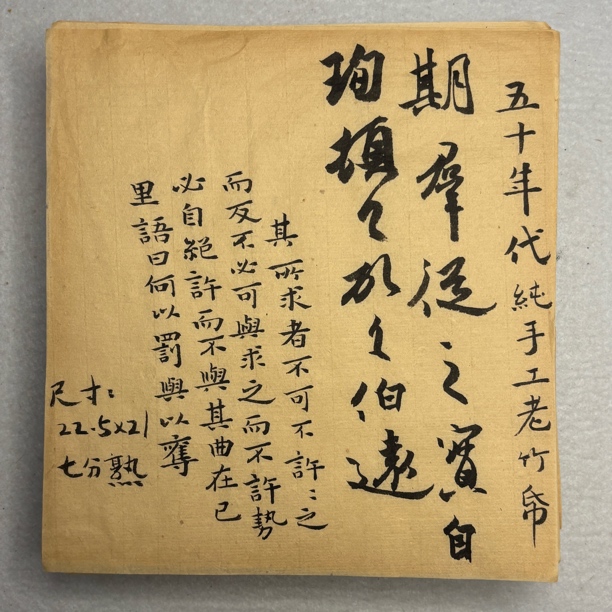 五十年代純手工老竹帋
期羣從之寶自
珣頓首頓首伯遠
其所求者不可不許許之
而反不必可與求之而不許勢
必自絕許而不與其曲在己
里語曰何以罰與以奪
尺寸:
22.5x21
七分熟